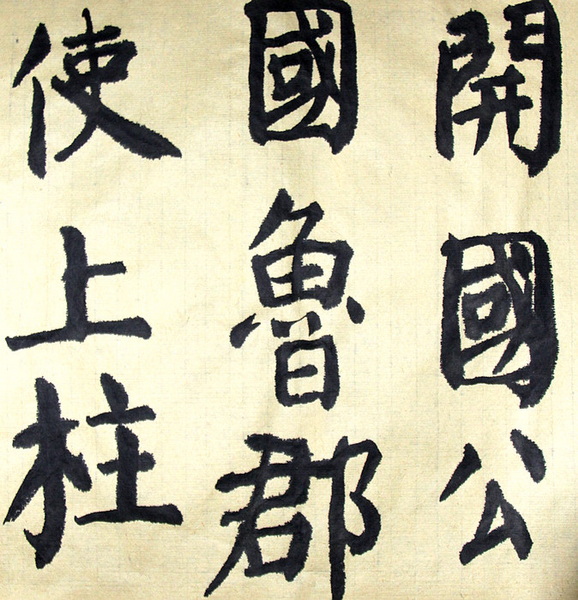 使上柱
國魯郡
開國公